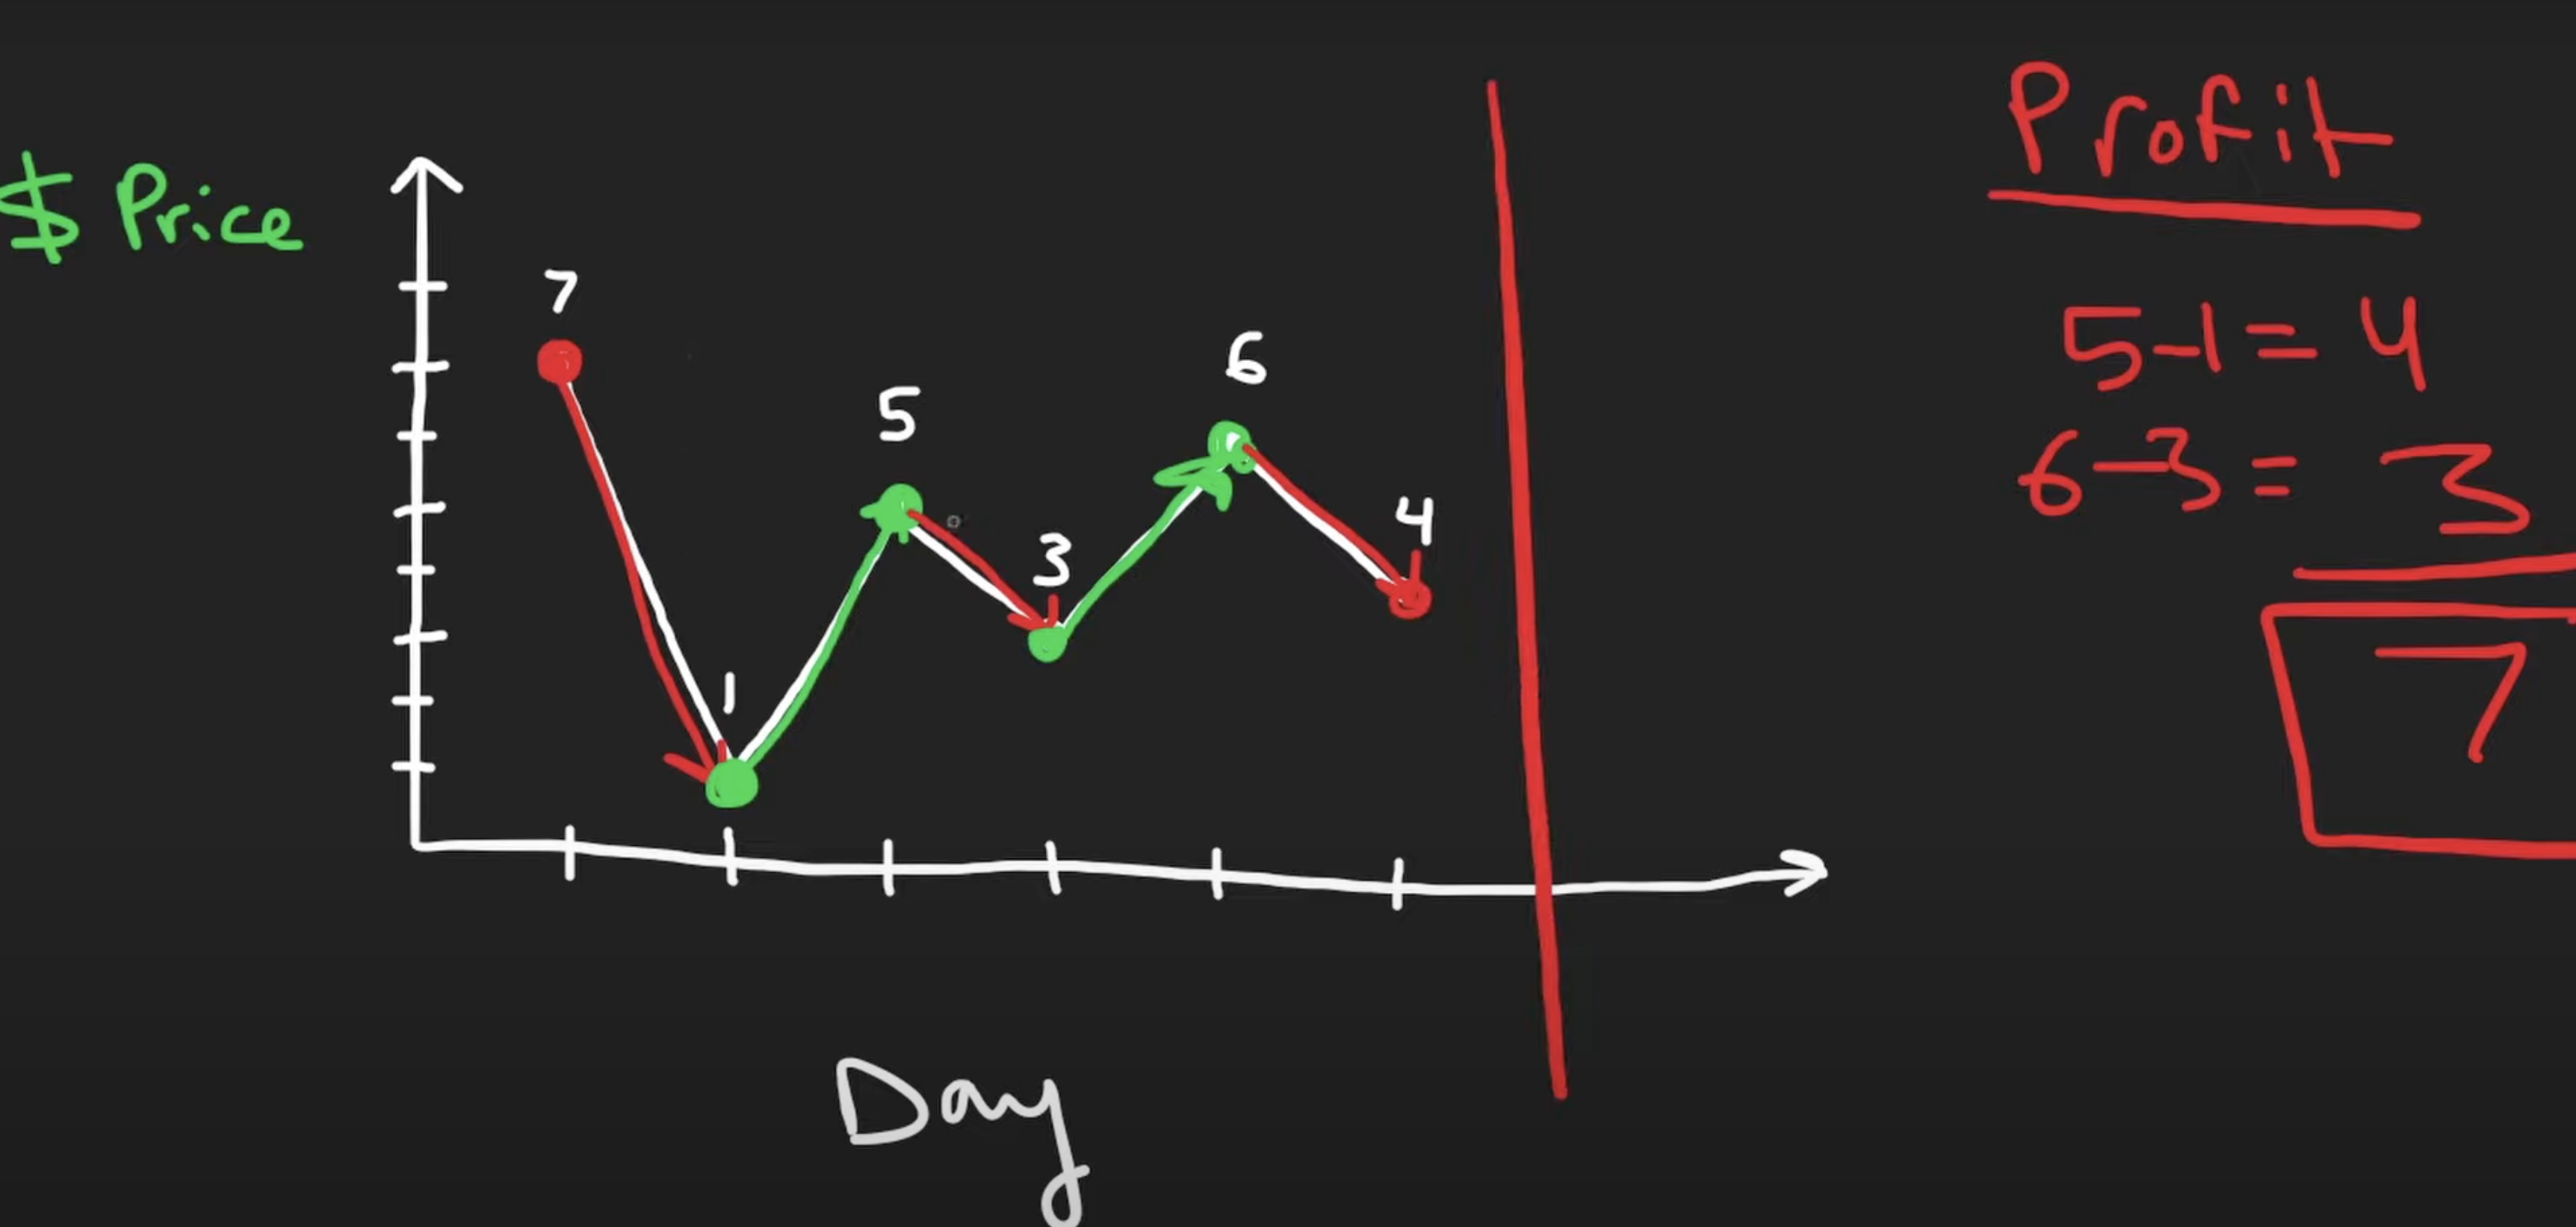 $ Price
7
1
5
3
6
4
Day
Profit
5-1=4
6-3=3
7